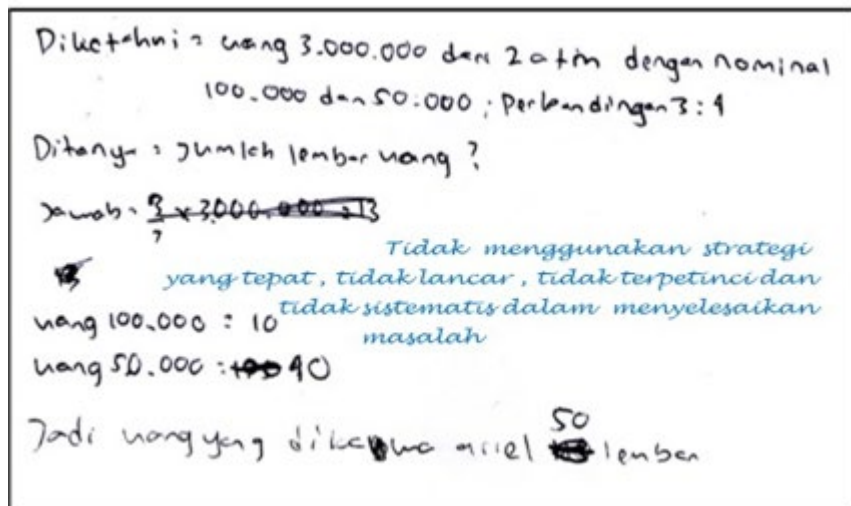 Diketahui = uang 3.000.000 dari 2 atm dengan nominal
100.000 dan 50.000 ; Perbandingan 3 : 4
Ditanya : Jumlah lembar uang ?
Jawab = 3/7 x 3.000.000 =
Tidak menggunakan strategi
yang tepat, tidak lancar, tidak terpetinci dan
tidak sistematis dalam menyelesaikan
masalah
uang 100.000 : 10
uang 50.000 : 40
Jadi uang yang ariel 50 lembar